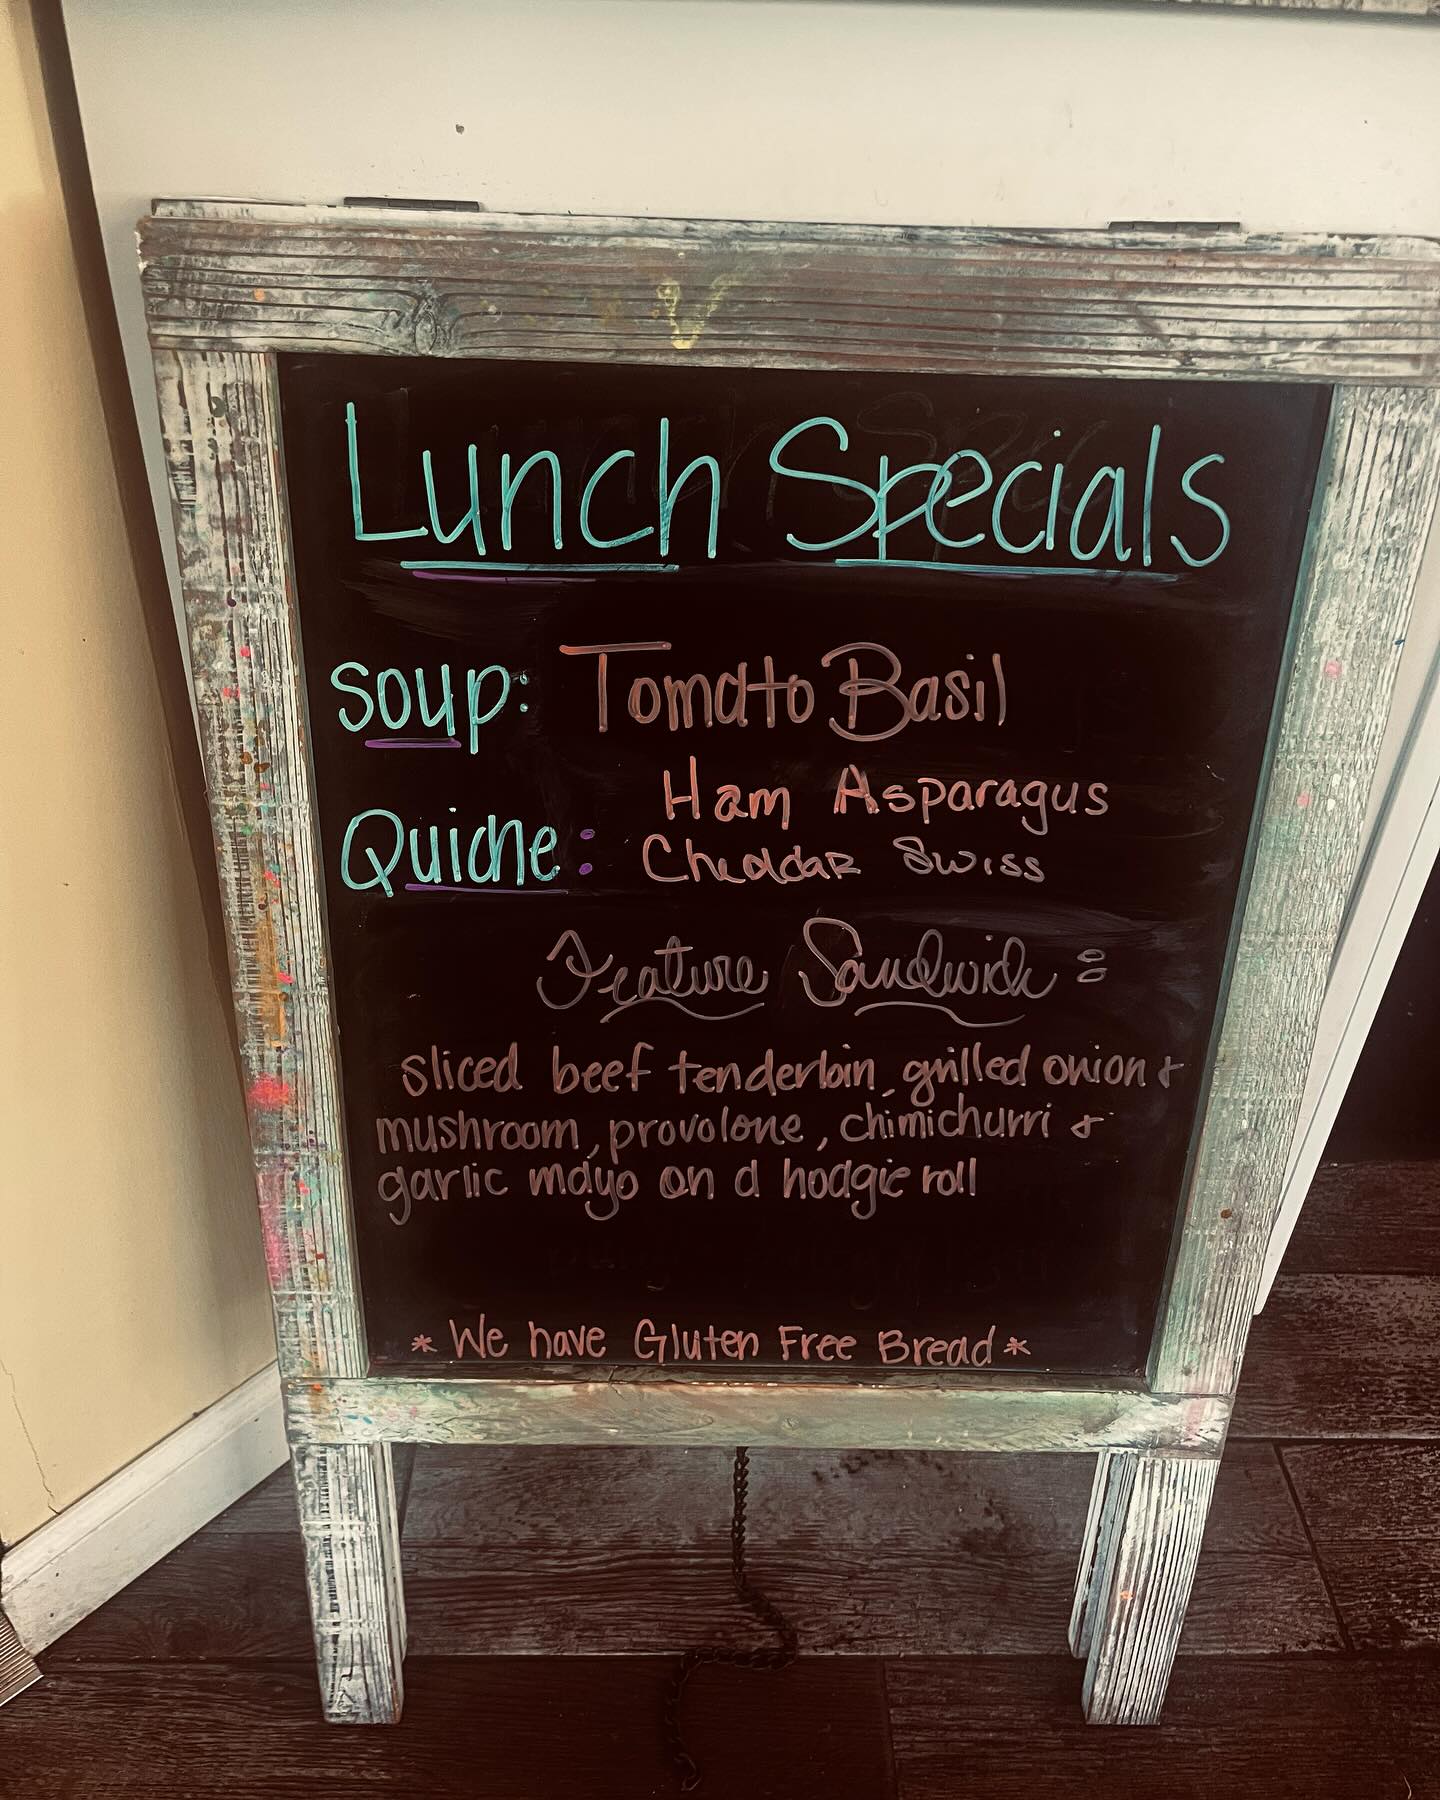 Lunch Specials
Soup: Tomato Basil
Quiche: Ham Asparagus
Cheddar Swiss
Feature Sandwich:
sliced beef tenderloin, grilled onion &
mushroom, provolone, chimichurri &
garlic mayo on a hodgie roll
*We have Gluten Free Bread*